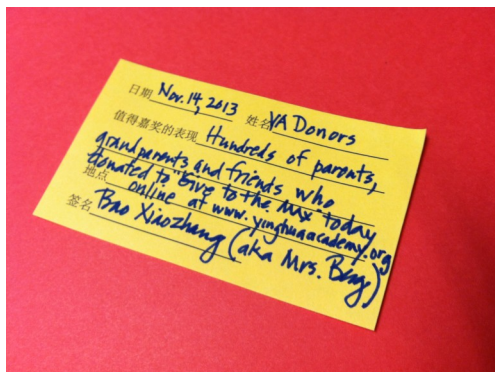 日期 Nov. 14, 2013 姓名 YA Donors
值得嘉奖的表现 Hundreds of parents,
grandparents and friends who
donated to "Give to the Max today
地点 online at www.yinghuaacademy.org
签名 Bao Xiaozhang (aka Mrs. Berg)